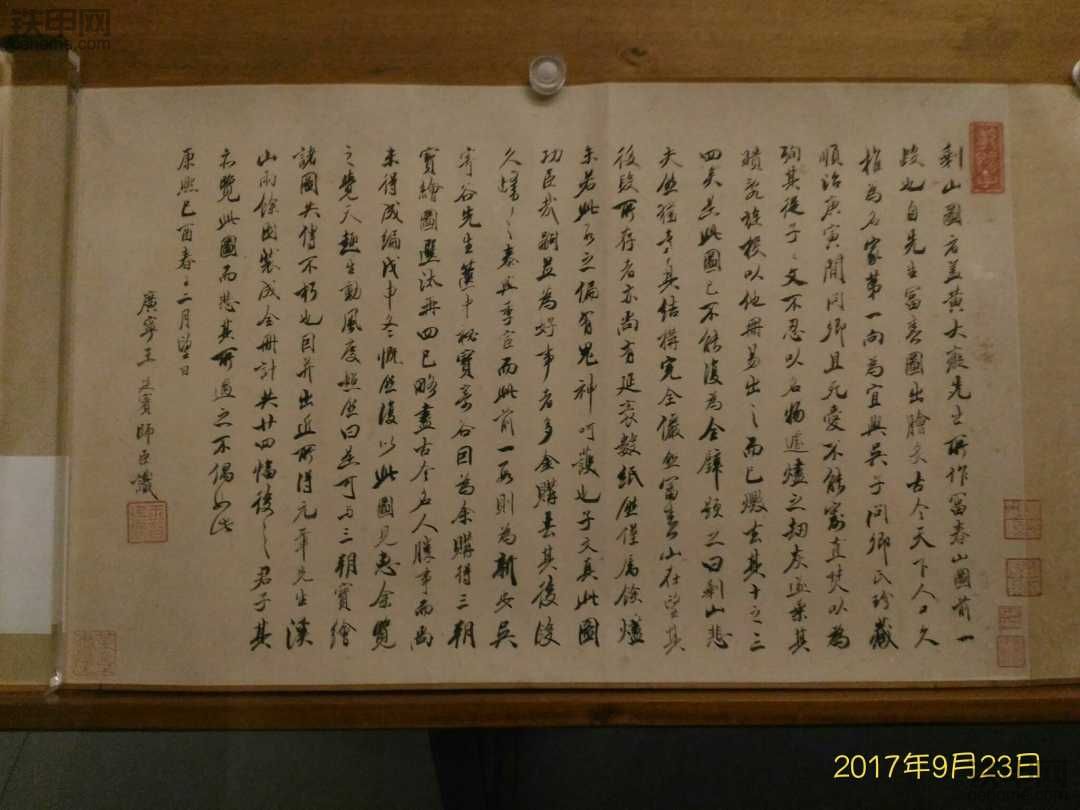 剩山圖者蓋黃大癡先生所作富春山圖前一
段也自先生富春圖出膾炙古今天下人口久
推為名家第一向為宜興吳子問卿氏珍藏
順治庚寅間問卿且死愛不能割直焚以為
殉其從子子文不忍以名物遽燼之劫灰遂乘其
瞶亂旋投以他冊易出之而已燬去其十之三
四矣然此圖已不能復為全璧題之曰剩山悲
夫然猶幸其結構完全儼然富春山在望其
後段所存者亦尚有延袤數紙然僅屬餘燼
未若此之偏有鬼神呵護也子文真此圖
功臣哉嗣並為好事者多金購去其後段
久歸之泰興季宦而此前一段則為新安吳
寄谷先生篋中秘寶寄谷因為余購得三朝
寶繪圖選汰再四已略盡古今名人勝事而尚
未得成編戊申冬慨然復以此圖見惠余覽
之覺天趣生動風度超然曰是可與三朝寶繪
諸圖共傳不朽也因并出近所得元章先生溪
山雨餘圖裝成全冊計共廿四幅後之君子其
亦覽此圖而悲其所遇之不偶如此
康熙己酉春二月望日
廣寧王廷賓師臣識
铁甲网
2017年9月23日